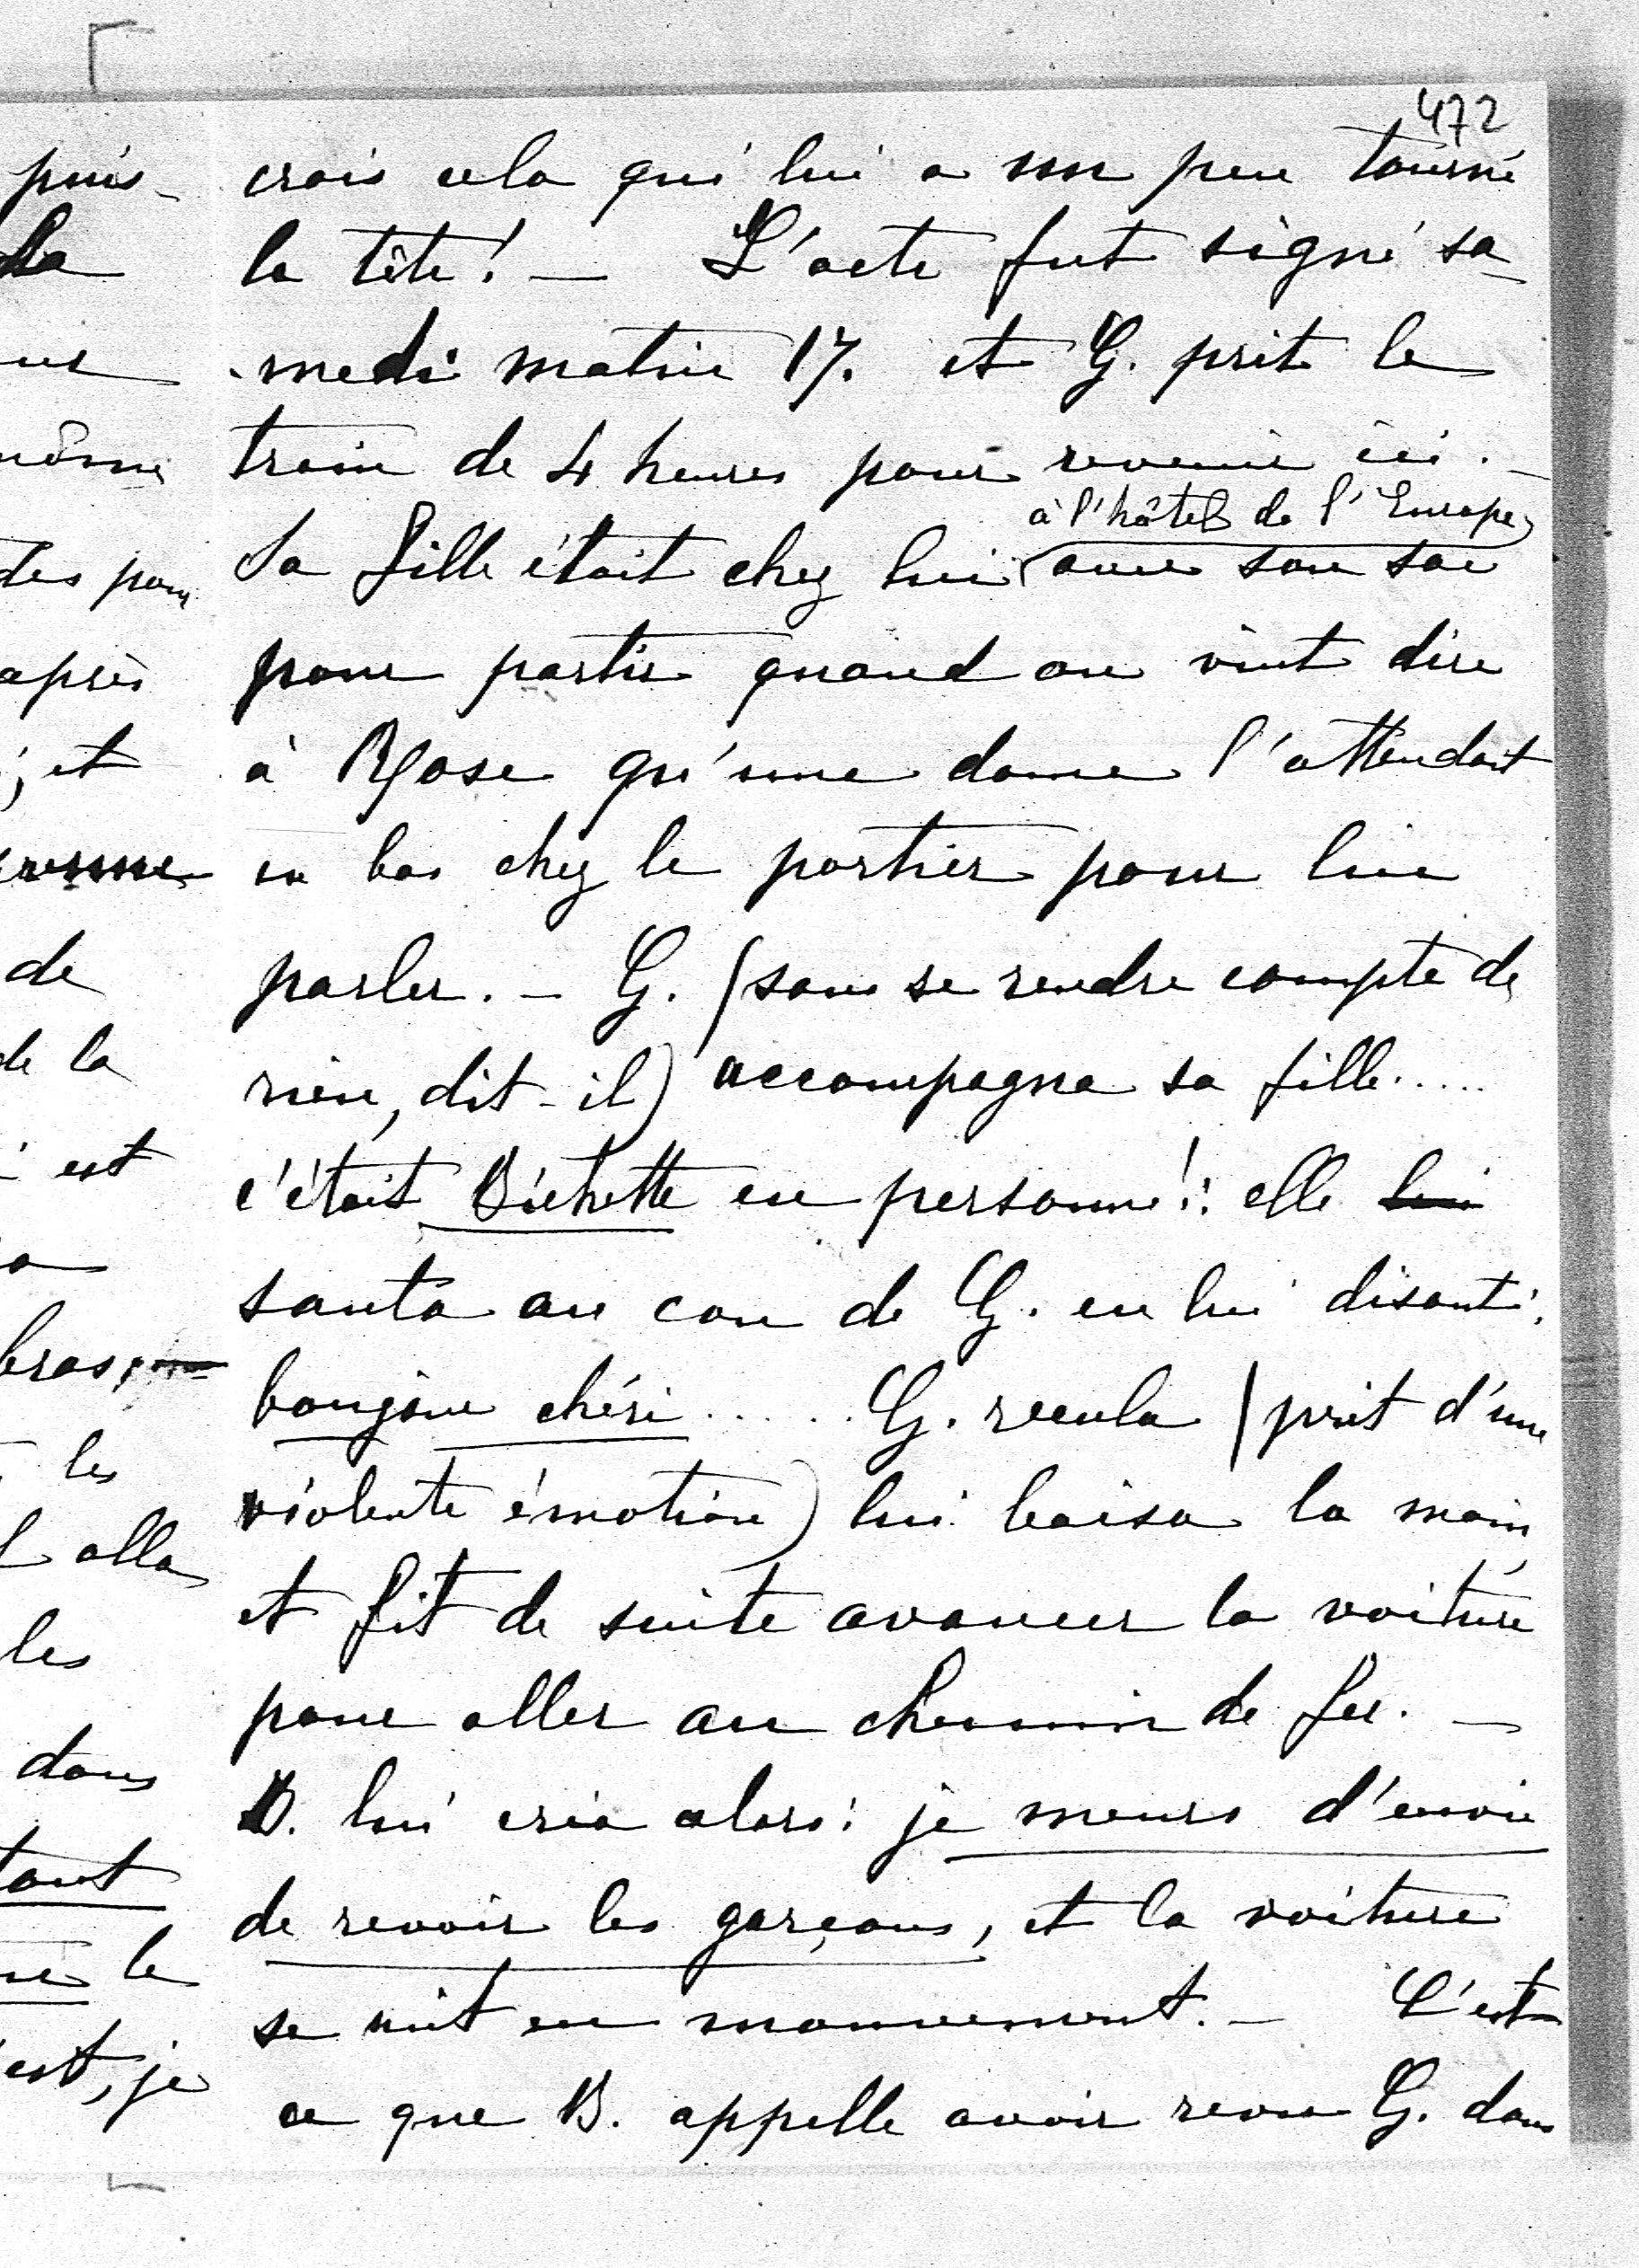 472
puis-
crois cela qui lui a un peu tourné
la tête! — L'acte fut signé sa-
-medi matin 17. et G. prit le
train de 4 heures pour revenir ici. —
à l'hôtel de l'Europe
Sa fille était chez lui avec son sac
pour partir quand on vint dire
à Rose qu'une dame l'attendait
en bas chez le portier pour lui
parler. — G. (sans se rendre compte de
rien, dit-il) accompagna sa fille.....
c'était Bichette en personne!: elle lui
sauta au cou de G. en lui disant:
bonjour chéri..... G. recula (prit d'une
violente émotion) lui baisa la main
et fit de suite avancer la voiture
pour aller au chemin de fer. —
B. lui cria alors: je meurs d'envie
de revoir les garçons, et la voiture
se mit en mouvement. — C'est
ce que B. appelle avoir revu G. dans
La
des pour
après
et
de
de la
est
bras,
les
alla
les
dans
tant
le
est, je